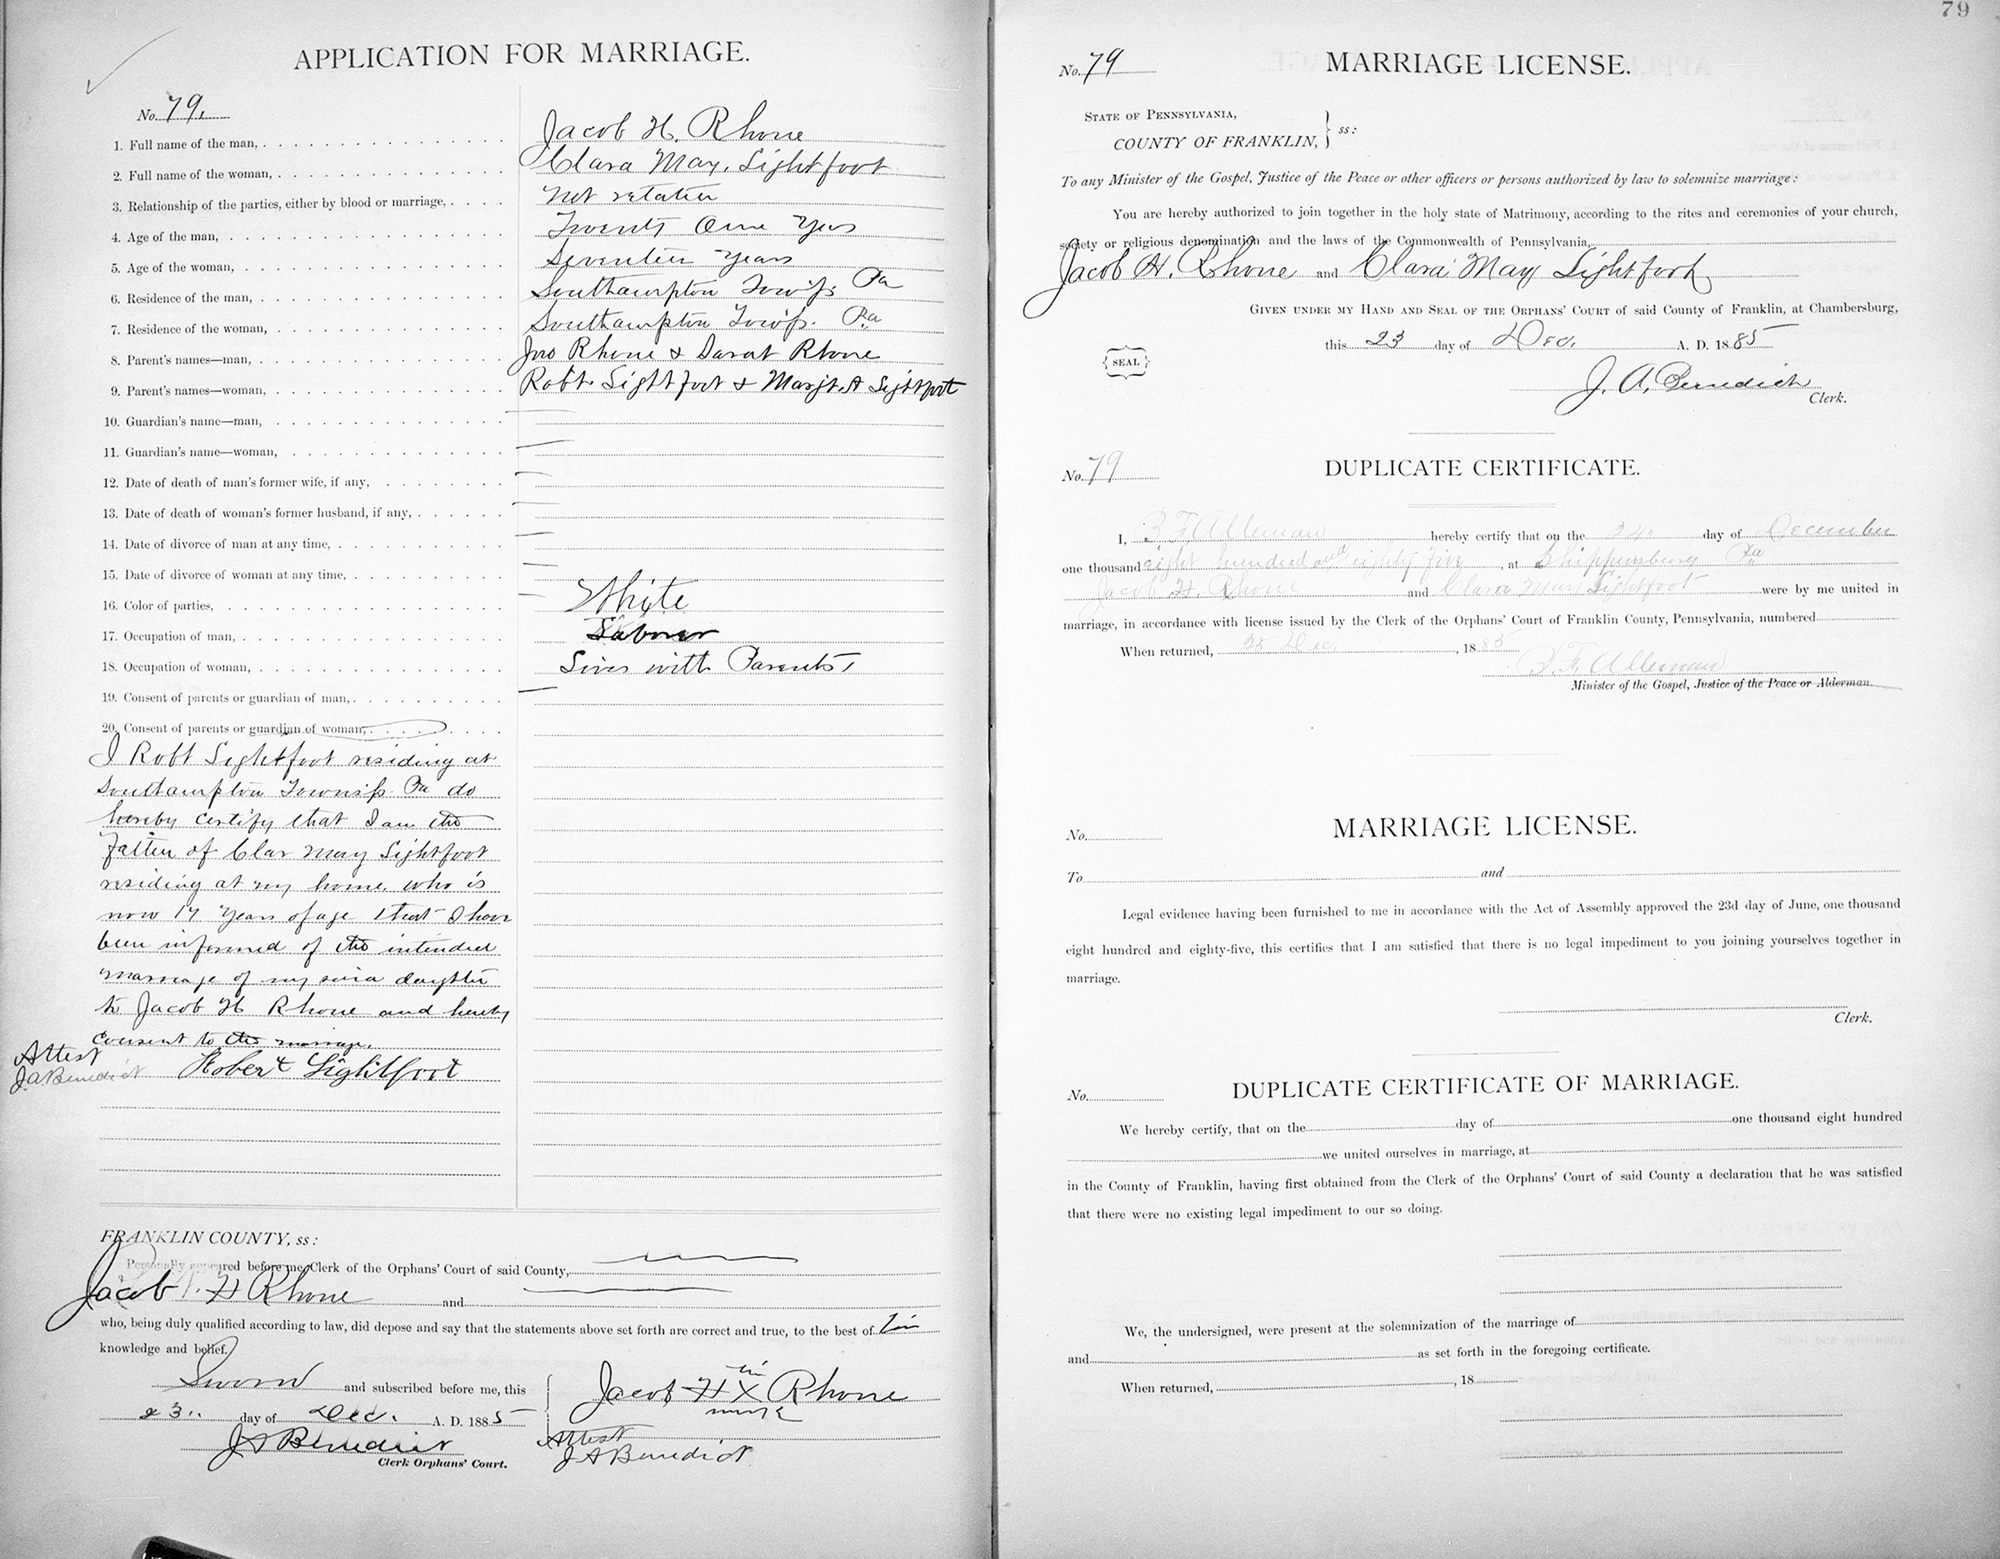 APPLICATION FOR MARRIAGE.
No. 79.
1. Full name of the man, Jacob H. Rhone
2. Full name of the woman, Clara May. Lightfoot
3. Relationship of the parties, either by blood or marriage, Not related
4. Age of the man, Twenty One Years
5. Age of the woman, Seventeen Years
6. Residence of the man, Southampton Towp. Pa
7. Residence of the woman, Southampton Towp. Pa
8. Parent's names—man, Jno Rhone & Sarah Rhone
9. Parent's names—woman, Robt. Lightfoot & Margt A Lightfoot
10. Guardian's name—man,
11. Guardian's name—woman,
12. Date of death of man's former wife, if any,
13. Date of death of woman's former husband, if any,
14. Date of divorce of man at any time,
15. Date of divorce of woman at any time,
16. Color of parties, White
17. Occupation of man, Laborer
18. Occupation of woman, Lives with Parents
19. Consent of parents or guardian of man,
20. Consent of parents or guardian of woman,
I Robt Lightfoot residing at
Southampton Township Pa do
hereby certify that I am the
Father of Clar May Lightfoot
residing at my home, who is
now 17 Years of age that I have
been informed of the intended
marriage of my said daughter
to Jacob H Rhone and hereby
consent to the marriage.
Attest
J.A Benedict Robert Lightfoot
FRANKLIN COUNTY, ss:
Personally appeared before me, Clerk of the Orphans' Court of said County,
Jacob H Rhone and
who, being duly qualified according to law, did depose and say that the statements above set forth are correct and true, to the best of his
knowledge and belief.
Sworn and subscribed before me, this
23. day of Dec. A. D. 1885
J A Benedict
Clerk Orphans' Court.
his
Jacob H X Rhone
mark
Attest
J A Benedict
79
No. 79 MARRIAGE LICENSE.
STATE OF PENNSYLVANIA,
COUNTY OF FRANKLIN, } ss:
To any Minister of the Gospel, Justice of the Peace or other officers or persons authorized by law to solemnize marriage:
You are hereby authorized to join together in the holy state of Matrimony, according to the rites and ceremonies of your church,
society or religious denomination and the laws of the Commonwealth of Pennsylvania,
Jacob H. Rhone and Clara May Lightfoot
GIVEN UNDER MY HAND AND SEAL OF THE ORPHANS' COURT of said County of Franklin, at Chambersburg,
this 23 day of Dec. A. D. 1885
SEAL
J. A. Benedict
Clerk.
No. 79 DUPLICATE CERTIFICATE.
I, B F Alleman hereby certify that on the 24 day of December
one thousand eight hundred and eighty five, at Shippensburg Pa
Jacob H. Rhone and Clara May Lightfoot were by me united in
marriage, in accordance with license issued by the Clerk of the Orphans' Court of Franklin County, Pennsylvania, numbered
When returned, 25 Dec. , 1885
B. F. Alleman
Minister of the Gospel, Justice of the Peace or Alderman.
No. MARRIAGE LICENSE.
To and
Legal evidence having been furnished to me in accordance with the Act of Assembly approved the 23d day of June, one thousand
eight hundred and eighty-five, this certifies that I am satisfied that there is no legal impediment to you joining yourselves together in
marriage.
Clerk.
No. DUPLICATE CERTIFICATE OF MARRIAGE.
We hereby certify, that on the day of one thousand eight hundred
we united ourselves in marriage, at
in the County of Franklin, having first obtained from the Clerk of the Orphans' Court of said County a declaration that he was satisfied
that there were no existing legal impediment to our so doing.
We, the undersigned, were present at the solemnization of the marriage of
and as set forth in the foregoing certificate.
When returned, , 18